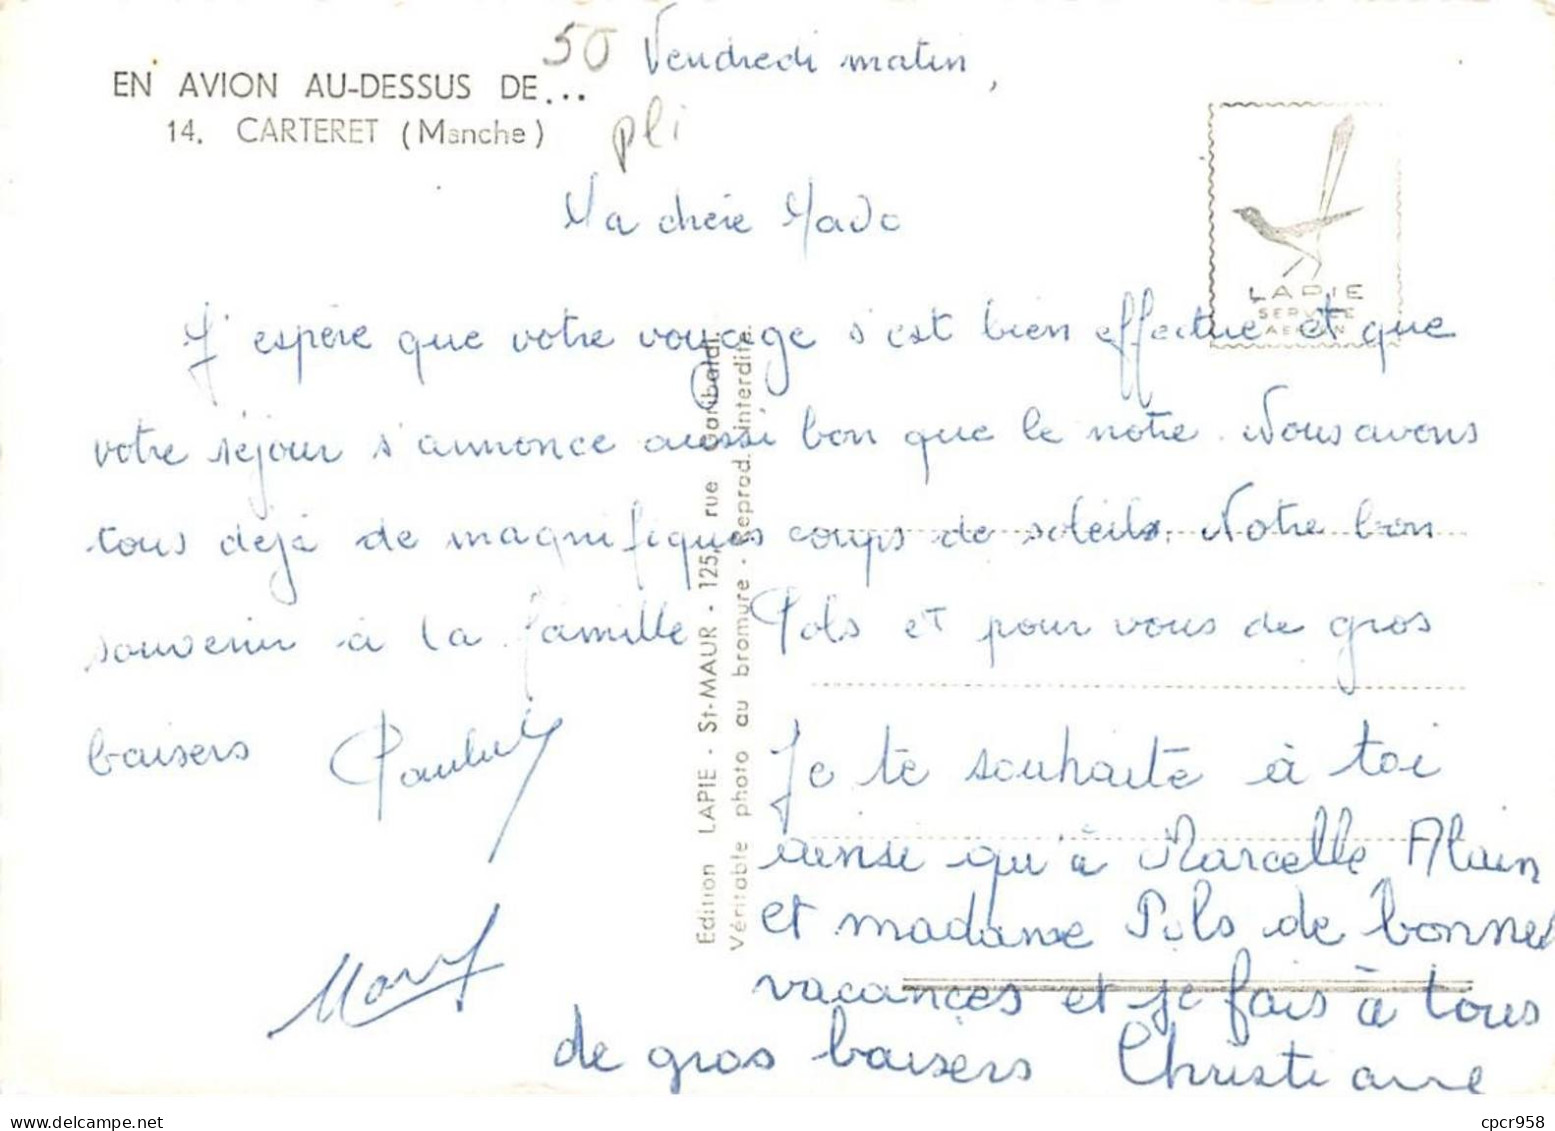 50 Vendredi matin,
EN AVION AU-DESSUS DE...
14. CARTERET (Manche)
pli
Ma chère Mado
LAPIE
SERVICE
AERIEN
J'espère que votre voyage s'est bien effectué et que
votre séjour s'annonce aussi bon que le notre. Nous avons
tous déjà de magnifiques coups de soleils. Notre bon
souvenir à la famille Pols et pour vous de gros
baisers
Je te souhaite à toi
ainsi qu'à Marcelle Alain
et madame Pols de bonnes
vacances et je fais à tous
de gros baisers Christiane
Edition LAPIE - St-MAUR - 125, rue Garibaldi.
Véritable photo au bromure - Reprod. interdite.
cpcr958